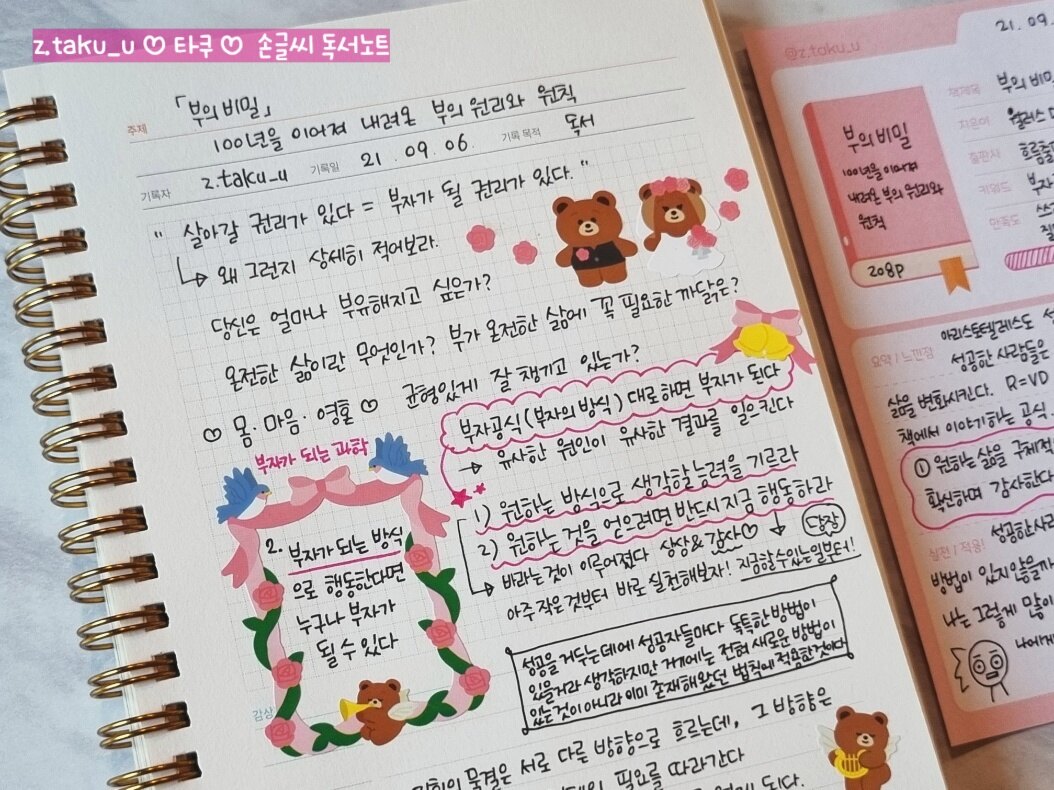 z.taku_u ♡ 타쿠 ♡ 손글씨 독서노트
주제 「부의 비밀」
100년을 이어져 내려온 부의 원리와 원칙
기록자 z.taku_u 기록일 21. 09. 06. 기록 목적 독서
" 살아갈 권리가 있다 = 부자가 될 권리가 있다. "
↳ 왜 그런지 상세히 적어보라.
당신은 얼마나 부유해지고 싶은가?
온전한 삶이란 무엇인가? 부가 온전한 삶에 꼭 필요한 까닭은?
♡ 몸·마음·영혼 ♡ 균형있게 잘 챙기고 있는가?
부자가 되는 과학
2. 부자가 되는 방식
으로 행동한다면
누구나 부자가
될 수 있다
감상
부자공식(부자의 방식)대로하면 부자가 된다
→ 유사한 원인이 유사한 결과를 일으킨다
1) 원하는 방식으로 생각할 능력을 기르라
2) 원하는 것을 얻으려면 반드시 지금 행동하라
당장
→ 바라는 것이 이루어졌다 상상&감사♡
아주 작은것부터 바로 실천해보자! 지금할수있는일부터!
성공을 거두는데에 성공자들마다 독특한 방법이
있을거라 생각하지만 거기에는 전혀 새로운 방법이
있는것이 아니라 이미 존재해왔던 법칙에 적용한것이다
물결은 서로 다른 방향으로 흐르는데, 그 방향은
필요를 따라간다
된다.
@z.taku_u
21. 09.
책제목 부의 비밀
지은이 월러스
출판사 흐름출판
키워드 부자
만족도
부의 비밀
100년을 이어져
내려온 부의 원리와
원칙
208p
요약 / 느낀점 아리스토텔레스도
성공한 사람들은
삶을 변화시킨다. R=VD
책에서 이야기하는 공식
① 원하는 삶을 구체적
확신하며 감사한다
실천 / 적용! 성공한사람
방법이 있지않을까
나는 그렇게 많이
나에게